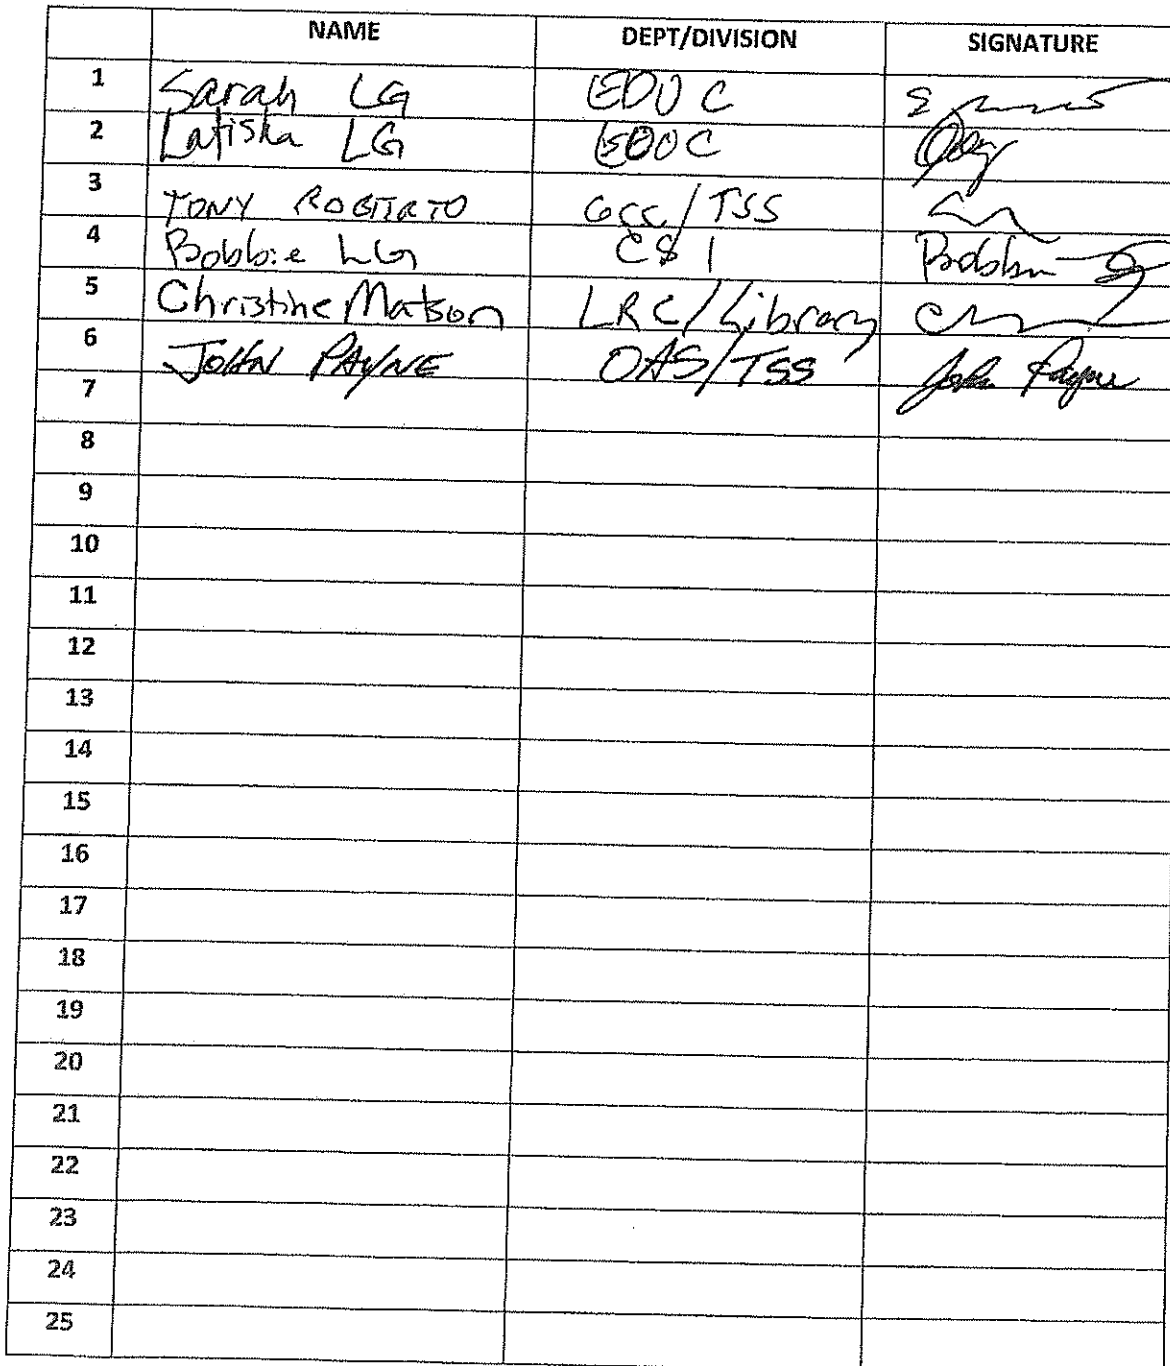 NAME DEPT/DIVISION SIGNATURE
1 Sarah LG EDUC
2 Latisha LG EDUC
3 TONY GCC/TSS
4 Bobbie LG CSI
5 Christine Matson LRC/Library
6 JOHN PAYNE OAS/TSS John Payne
7
8
9
10
11
12
13
14
15
16
17
18
19
20
21
22
23
24
25